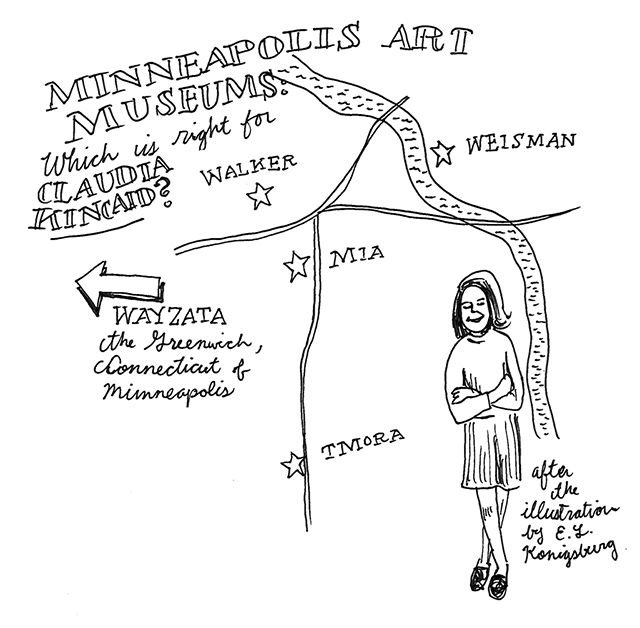 MINNEAPOLIS ART
MUSEUMS:
Which is right for
CLAUDIA
KINCAID?
WALKER
WEISMAN
MIA
WAYZATA
the Greenwich,
Connecticut of
Minneapolis
TMORA
after
the
illustration
by E.L.
Konigsburg